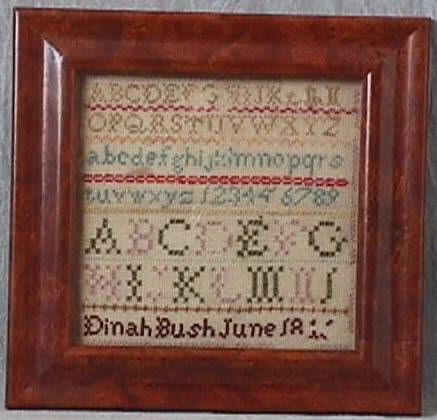 ABCDEFG
OPQRSTUVWXYZ
abcdefghijklmnopqrs
tuvwxyz 12344 6789
A B C D E F G
H I J K L M N
Dinah Bush June